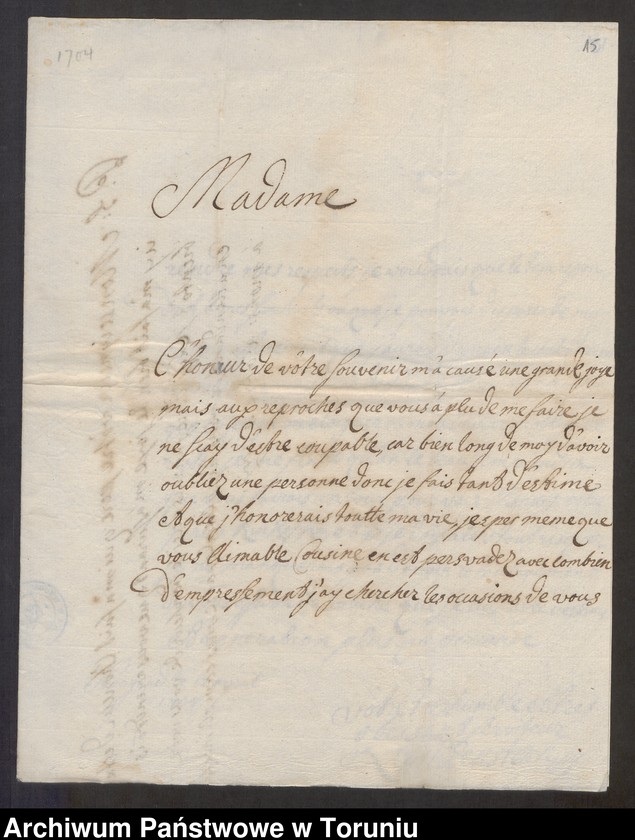 1704
15
Madame
L'honeur de vôtre souvenir m'a causé une grande joye
mais aux reproches que vous à plu de me faire, je
ne scay d'estre coupable, car bien long de moy d'avoir
oubliez une personne donc je fais tant d'estime
et que j'honorerais toutte ma vie, j'espes meme que
vous Aimable Cousine en est persvadez avec combien
d'empressement j'ay chercher les occasions de vous
Archiwum Państwowe w Toruniu